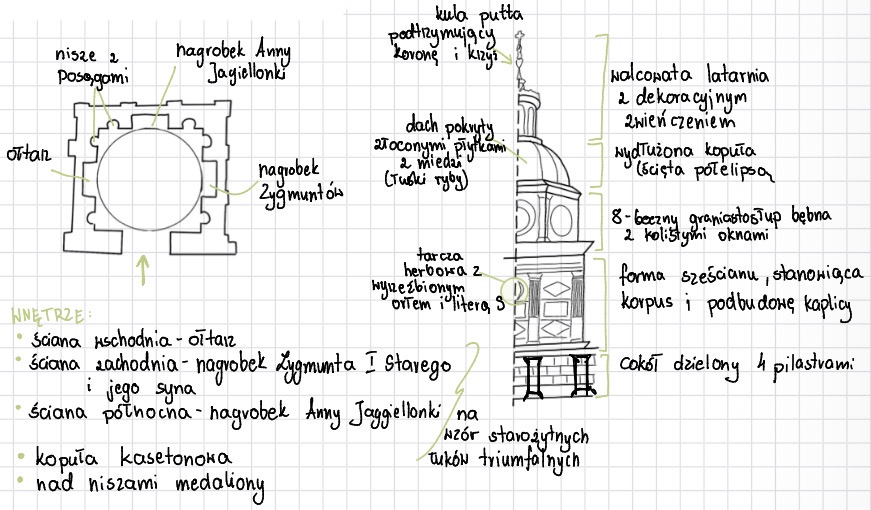 nisze z
posągami
nagrobek Anny
Jagiellonki
ołtarz
nagrobek
Zygmuntów
kula putta
podtrzymujący
koronę i krzyż
dach pokryty
złoconymi płytkami
z miedzi
(łuski ryby)
tarcza
herbowa z
wyrzeźbionym
orłem i literą S
walcowata latarnia
z dekoracyjnym
zwieńczeniem
wydłużona kopuła
(ścięta półelipsą
8-boczny graniastosłup bębna
z kolistymi oknami
forma sześcianu, stanowiąca
korpus i podbudowę kaplicy
cokół dzielony 4 pilastrami
WNĘTRZE:
• ściana wschodnia - ołtarz
• ściana zachodnia - nagrobek Zygmunta I Starego
i jego syna
• ściana północna - nagrobek Anny Jaggiellonki na
wzór starożytnych
łuków triumfalnych
• kopuła kasetonowa
• nad niszami medaliony